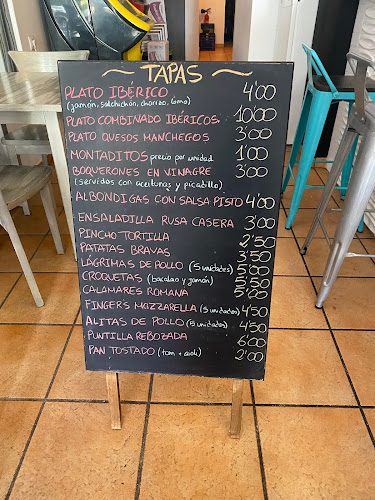 ~ TAPAS ~
PLATO IBÉRICO 4'00
(jamón, salchichón, chorizo, lomo)
PLATO COMBINADO IBÉRICOS 10'00
PLATO QUESOS MANCHEGOS 3'00
MONTADITOS precio por unidad 1'00
BOQUERONES EN VINAGRE 3'00
(servidos con aceitunas y picadillo)
ALBONDIGAS CON SALSA PISTO 4'00
ENSALADILLA RUSA CASERA 3'00
PINCHO TORTILLA 2'50
PATATAS BRAVAS 3'50
LÁGRIMAS DE POLLO (5 unidades) 5'00
CROQUETAS (bacalao y jamón) 5'50
CALAMARES ROMANA 5'00
FINGERS MOZZARELLA (5 unidades) 4'50
ALITAS DE POLLO (5 unidades) 4'50
PUNTILLA REBOZADA 6'00
PAN TOSTADO (tom + aioli) 2'00